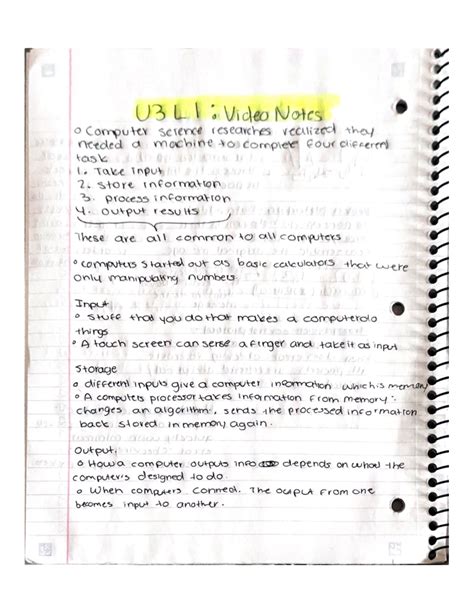 U3 L1: Video Notes
o Computer science researches realized they
needed a machine to complete four different
task
1. Take Input
2. store information
3. process information
4. output results
These are all common to all computers
o computers started out as basic calculators that were
only manipulating numbers.
Input
o Stuff that you do that makes a computer do
things
o A touch screen can sense a finger and take it as input
Storage
o different inputs give a computer information which is memory
o A computers processor takes information from memory:
changes an algorithm, sends the processed information
back stored in memory again.
Output
o How a computer outputs info depends on what the
computer is designed to do.
o When computers connect. The output from one
becomes input to another.